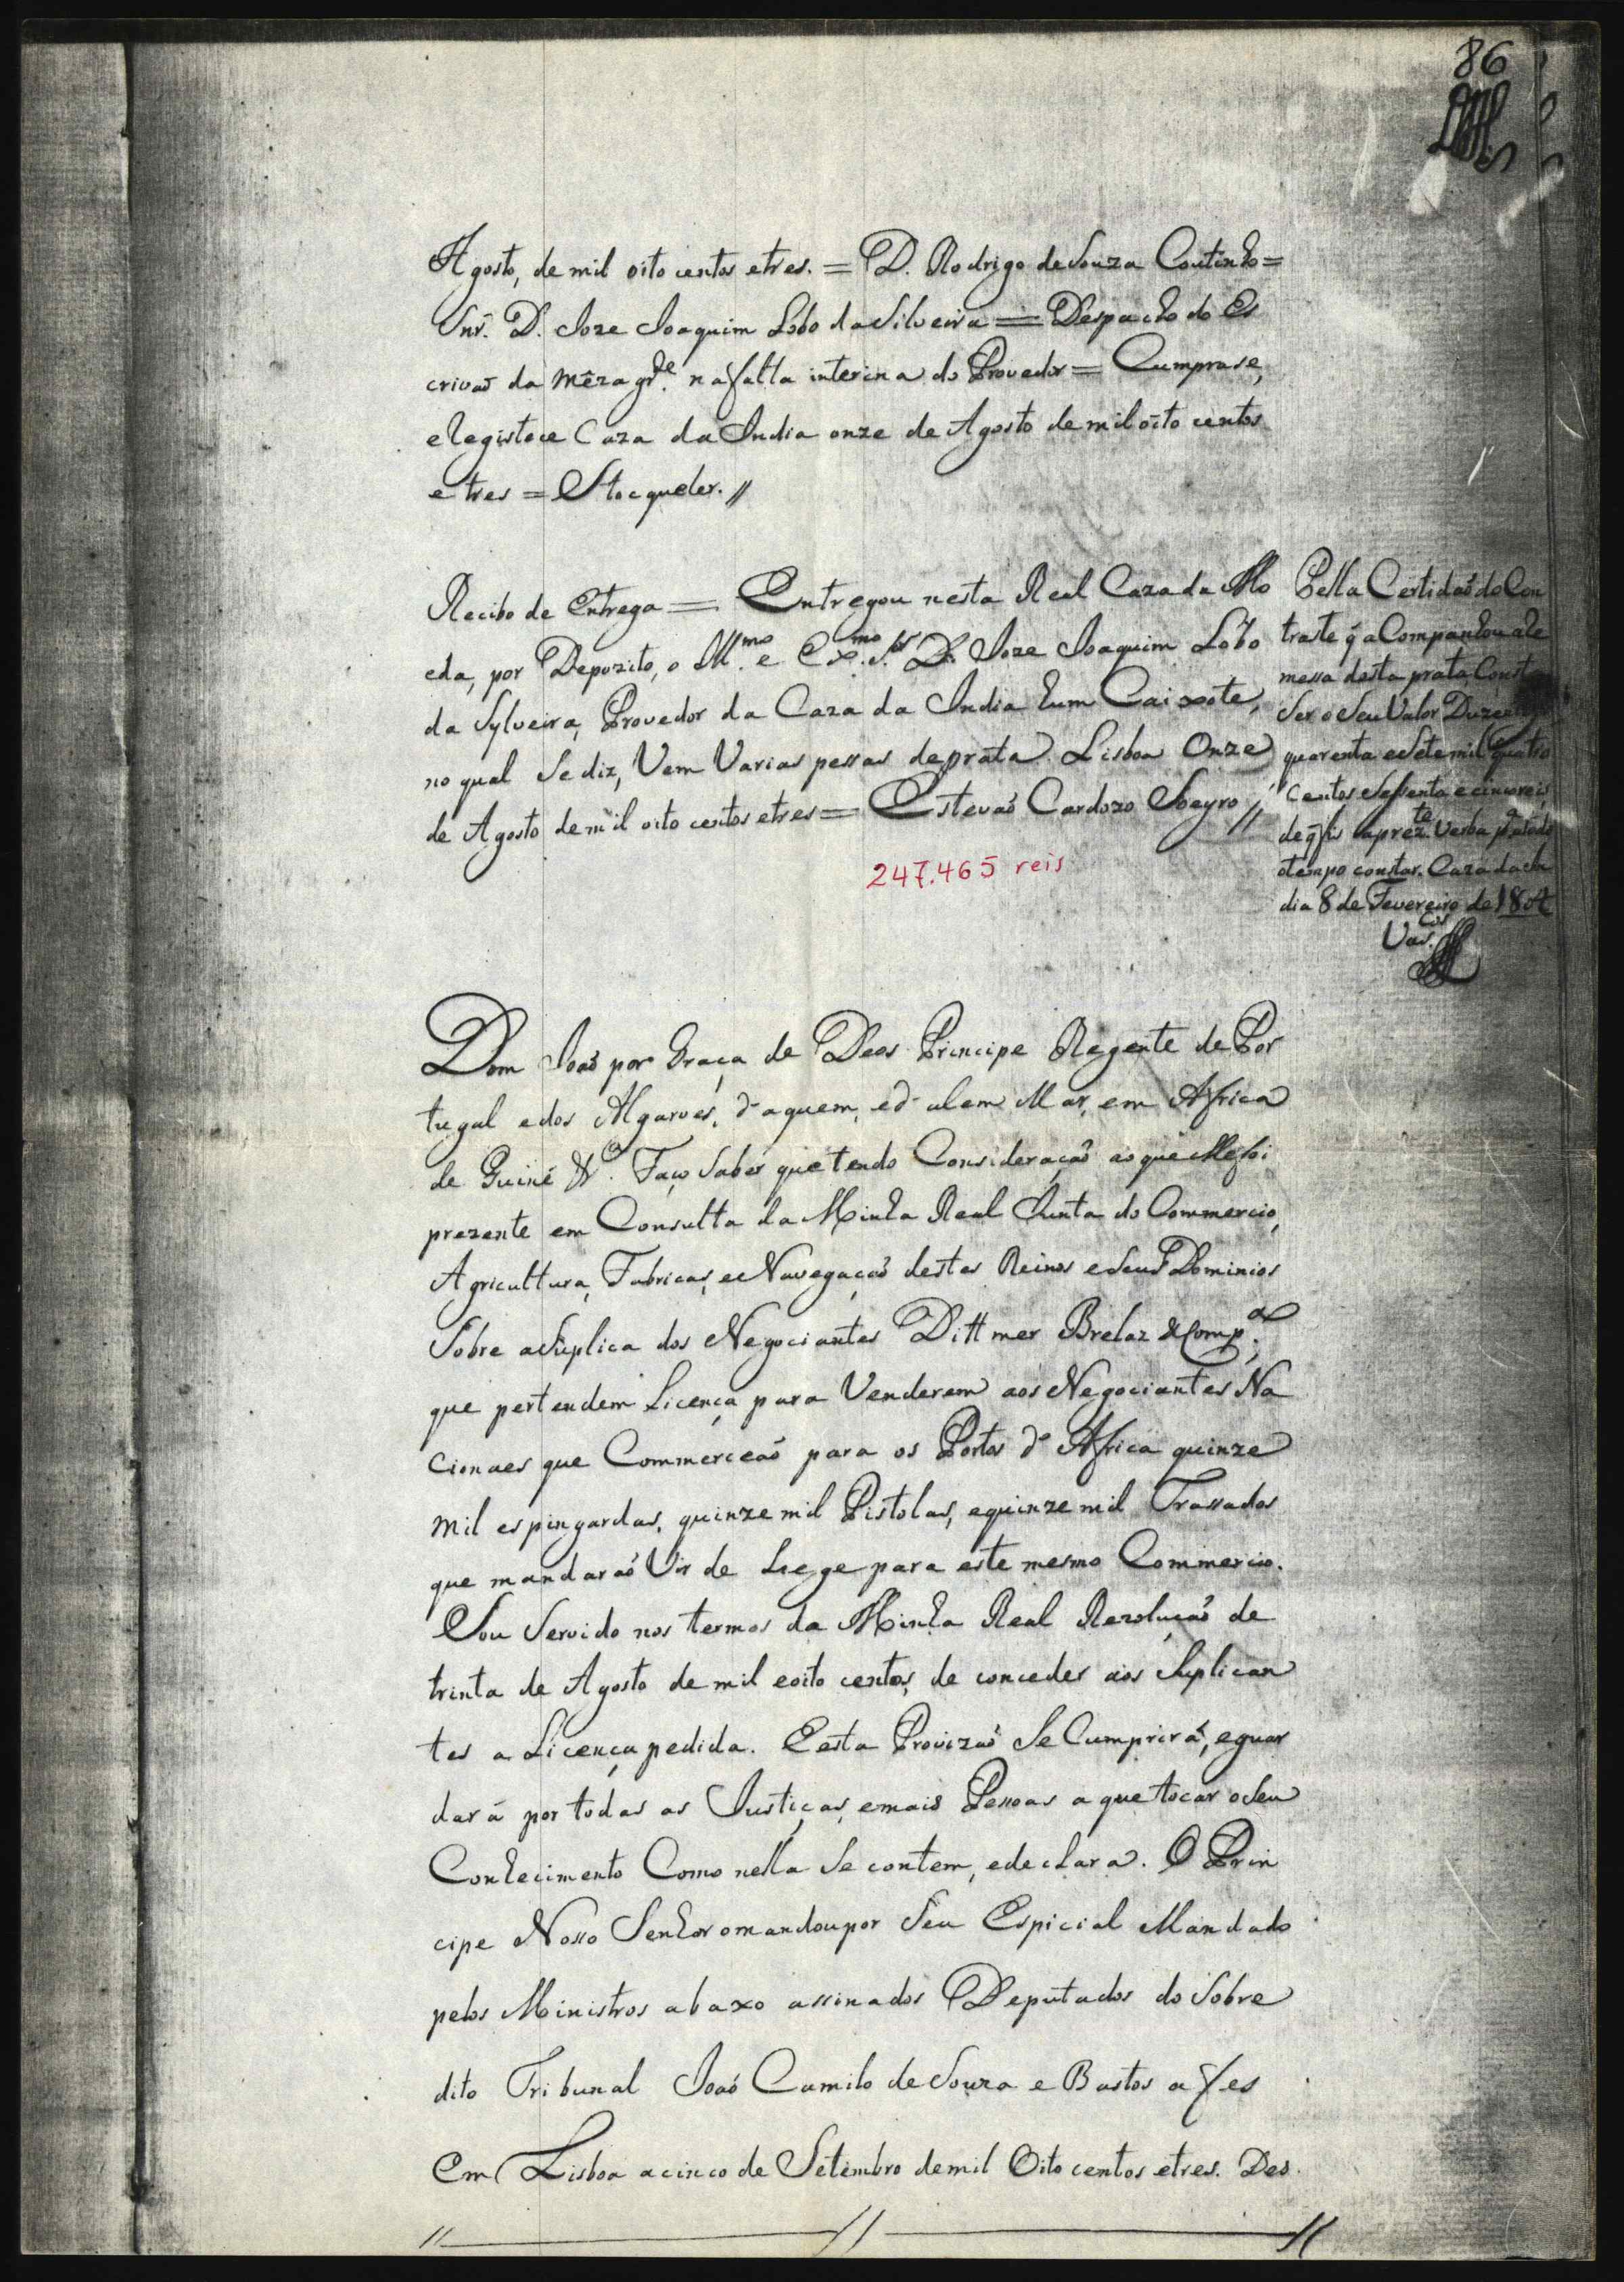 86
Agosto, de mil oito centos etres. = D. Rodrigo deSouza Coutinho =
Snr. D. Joze Joaquim Lobo daSilveira = Despacho do Es
crivaõ da Mêza gr.de nafalta interina do Provedor = Cumprase,
eRegistece Caza da India onze de Agosto demil oito centos
e tres = Stocqueler. //
Recibo de Entrega = Entregou nesta Real Cazada Mo
eda, por Depozito, o Ill.mo e Ex.mo S.or D. Joze Joaquim Lobo
da Sylveira, Provedor da Caza da India hum Caixote,
no qual Sediz, Vem Varias pessas deprata. Lisboa Onze
de Agosto demil oito centos etres = Estevaõ Cardozo Soeyro //
247.465 reis
Pella Certidaõ do Con
traste q̃ aCompanhou aRe
messa desta prata, Consta
Ser o Seu Valor Duzentos
quarenta eSete mil quatro
Centos Sessenta ecincoreis,
deq̃ fis aprez.te Verba p.a atodo
otempo constar. Caza da In
dia 8 de Fevereiro de 1804
Vas.cos
Dom Joaõ por Graça de Deos Principe Regente de Por
tugal edos Algarves, d'aquem, ed'alem Mar, em Africa
de Guiné &.a Faço Saber quetendo Consideraçaõ aoque Mefoi
prezente em Consulta da Minha Real Junta do Commercio,
Agricultura, Fabricas, eNavegaçaõ destes Reinos eSeus Dominios
Sobre aSuplica dos Negociantes Dittmer Brelaz &Comp.a,
que pertendem Licença para Venderem aos Negociantes Na
Cionaes que Commerceaõ para os Portos d'Africa quinze
mil espingardas, quinze mil Pistolas, equinze mil Trassados
que mandaraõ Vir de Liege para este mesmo Commercio.
Sou Servido nos termos da Minha Real Rezoluçaõ de
trinta de Agosto de mil eoito centos, de conceder aos Suplican
tes a Licença pedida. Eesta Provizaõ Se Cumprirá, eguar
dará por todas as Justiças, emais Pessoas a quetocar oSeu
Conhecimento Como nella Se contem, edeclara. O Prin
cipe Nosso Senhor omandoupor Seu Espicial Mandado
pelos Ministros abaxo assinados Deputados do Sobre
dito Tribunal Joaõ Camilo de Souza e Bastos afes
Em Lisboa acinco de Setembro demil Oito centos etres. Des